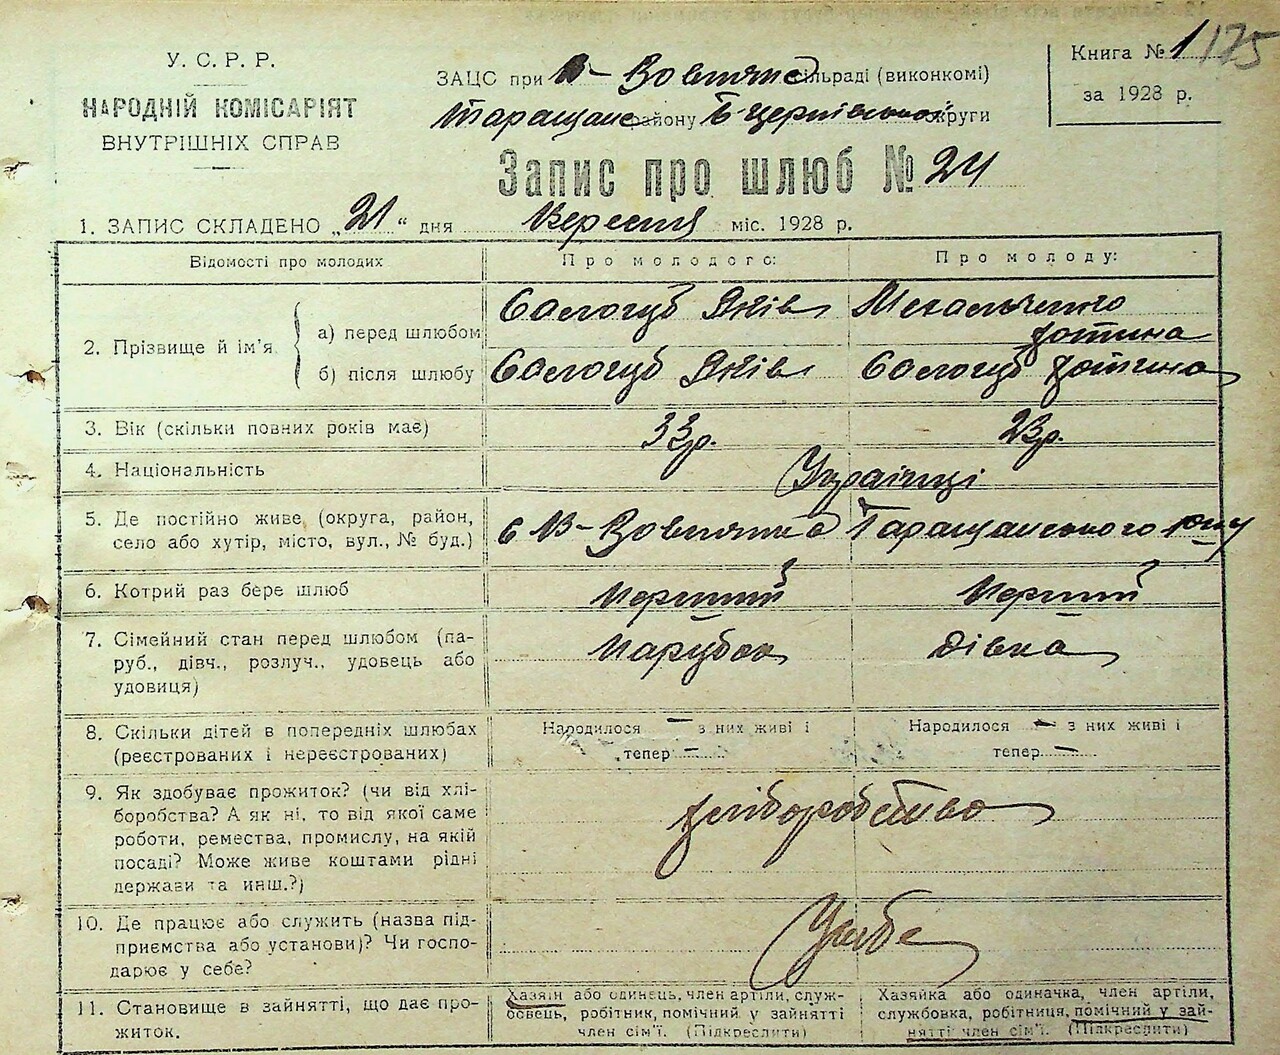 У. С. Р. Р.
НАРОДНІЙ КОМІСАРІЯТ
ВНУТРІШНІХ СПРАВ
ЗАЦС при В-Вовнянс сільраді (виконкомі)
Таращанс району Б-Церківської округи
Книга № 1 175
за 1928 р.
Запис про шлюб № 24
1. ЗАПИС СКЛАДЕНО „21“ дня Вересня міс. 1928 р.
Відомості про молодих
Про молодого:
Про молоду:
2. Прізвище й ім'я
а) перед шлюбом
Сологуб Яків
Михальченко
Хотина
б) після шлюбу
Сологуб Яків
Сологуб Хотина
3. Вік (скільки повних років має)
33р.
23р.
4. Національність
Українці
5. Де постійно живе (округа, район,
село або хутір, місто, вул., № буд.)
с В-Вовнянка Таращанського р-ну
6. Котрий раз бере шлюб
Перший
Перший
7. Сімейний стан перед шлюбом (па-
руб., дівч., розлуч., удовець або
удовиця)
Парубок
Дівка
8. Скільки дітей в попередніх шлюбах
(реєстрованих і нереєстрованих)
Народилося — з них живі і
тепер —
Народилося — з них живі і
тепер —
9. Як здобуває прожиток? (чи від хлі-
боробства? А як ні, то від якої саме
роботи, ремества, промислу, на якій
посаді? Може живе коштами рідні
держави та инш.?)
хліборобство
10. Де працює або служить (назва під-
приємства або установи)? Чи госпо-
дарює у себе?
У себе
11. Становище в зайнятті, що дає про-
житок.
Хазяїн або одинець, член артілі, служ-
бовець, робітник, помічний у зайнятті
член сім'ї. (Підкреслити)
Хазяйка або одиначка, член артілі,
службовка, робітниця, помічний у зай-
нятті член сім'ї. (Підкреслити)